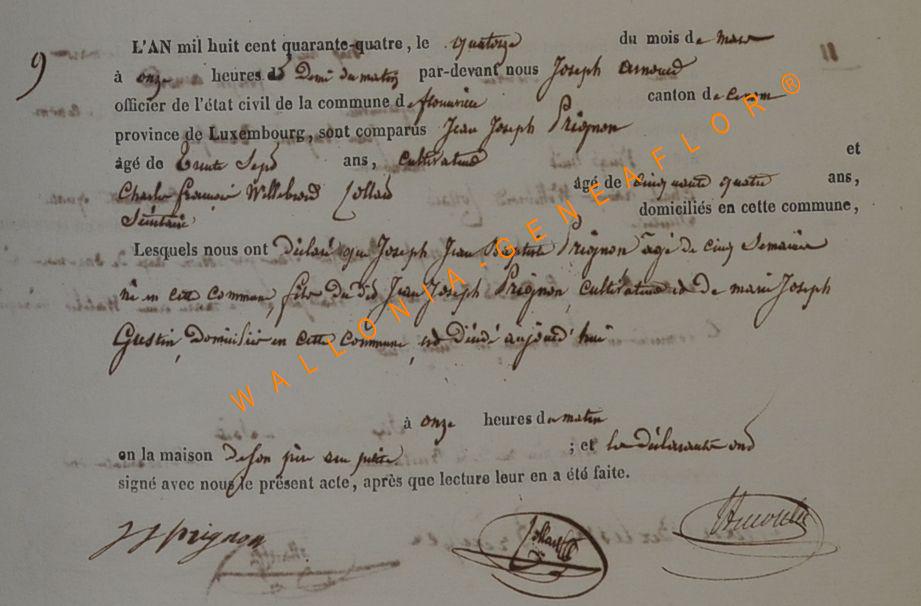 9
L'AN mil huit cent quarante-quatre, le quatorze du mois de mars
à onze heures et Demi du matin par-devant nous Joseph Arnould
officier de l'état civil de la commune de canton de
province de Luxembourg, sont comparus Jean Joseph Prignon
âgé de trente Sept ans, cultivateur et
Charles françois Willebrord Collard âgé de cinquante quatre ans,
domiciliés en cette commune,
Lesquels nous ont déclaré que Joseph Jean Baptiste Prignon âgé de cinq Semaines
né en cette commune, fils du dit Jean Joseph Prignon cultivateur et de marie Joseph
Gustin, Domiciliés en cette commune, est décédé aujourd'hui
à onze heures du matin
en la maison de son père ; et les déclarants ont
signé avec nous le présent acte, après que lecture leur en a été faite.
JJ prignon Collard Arnould
WALLONIA-GENEAFLOR®